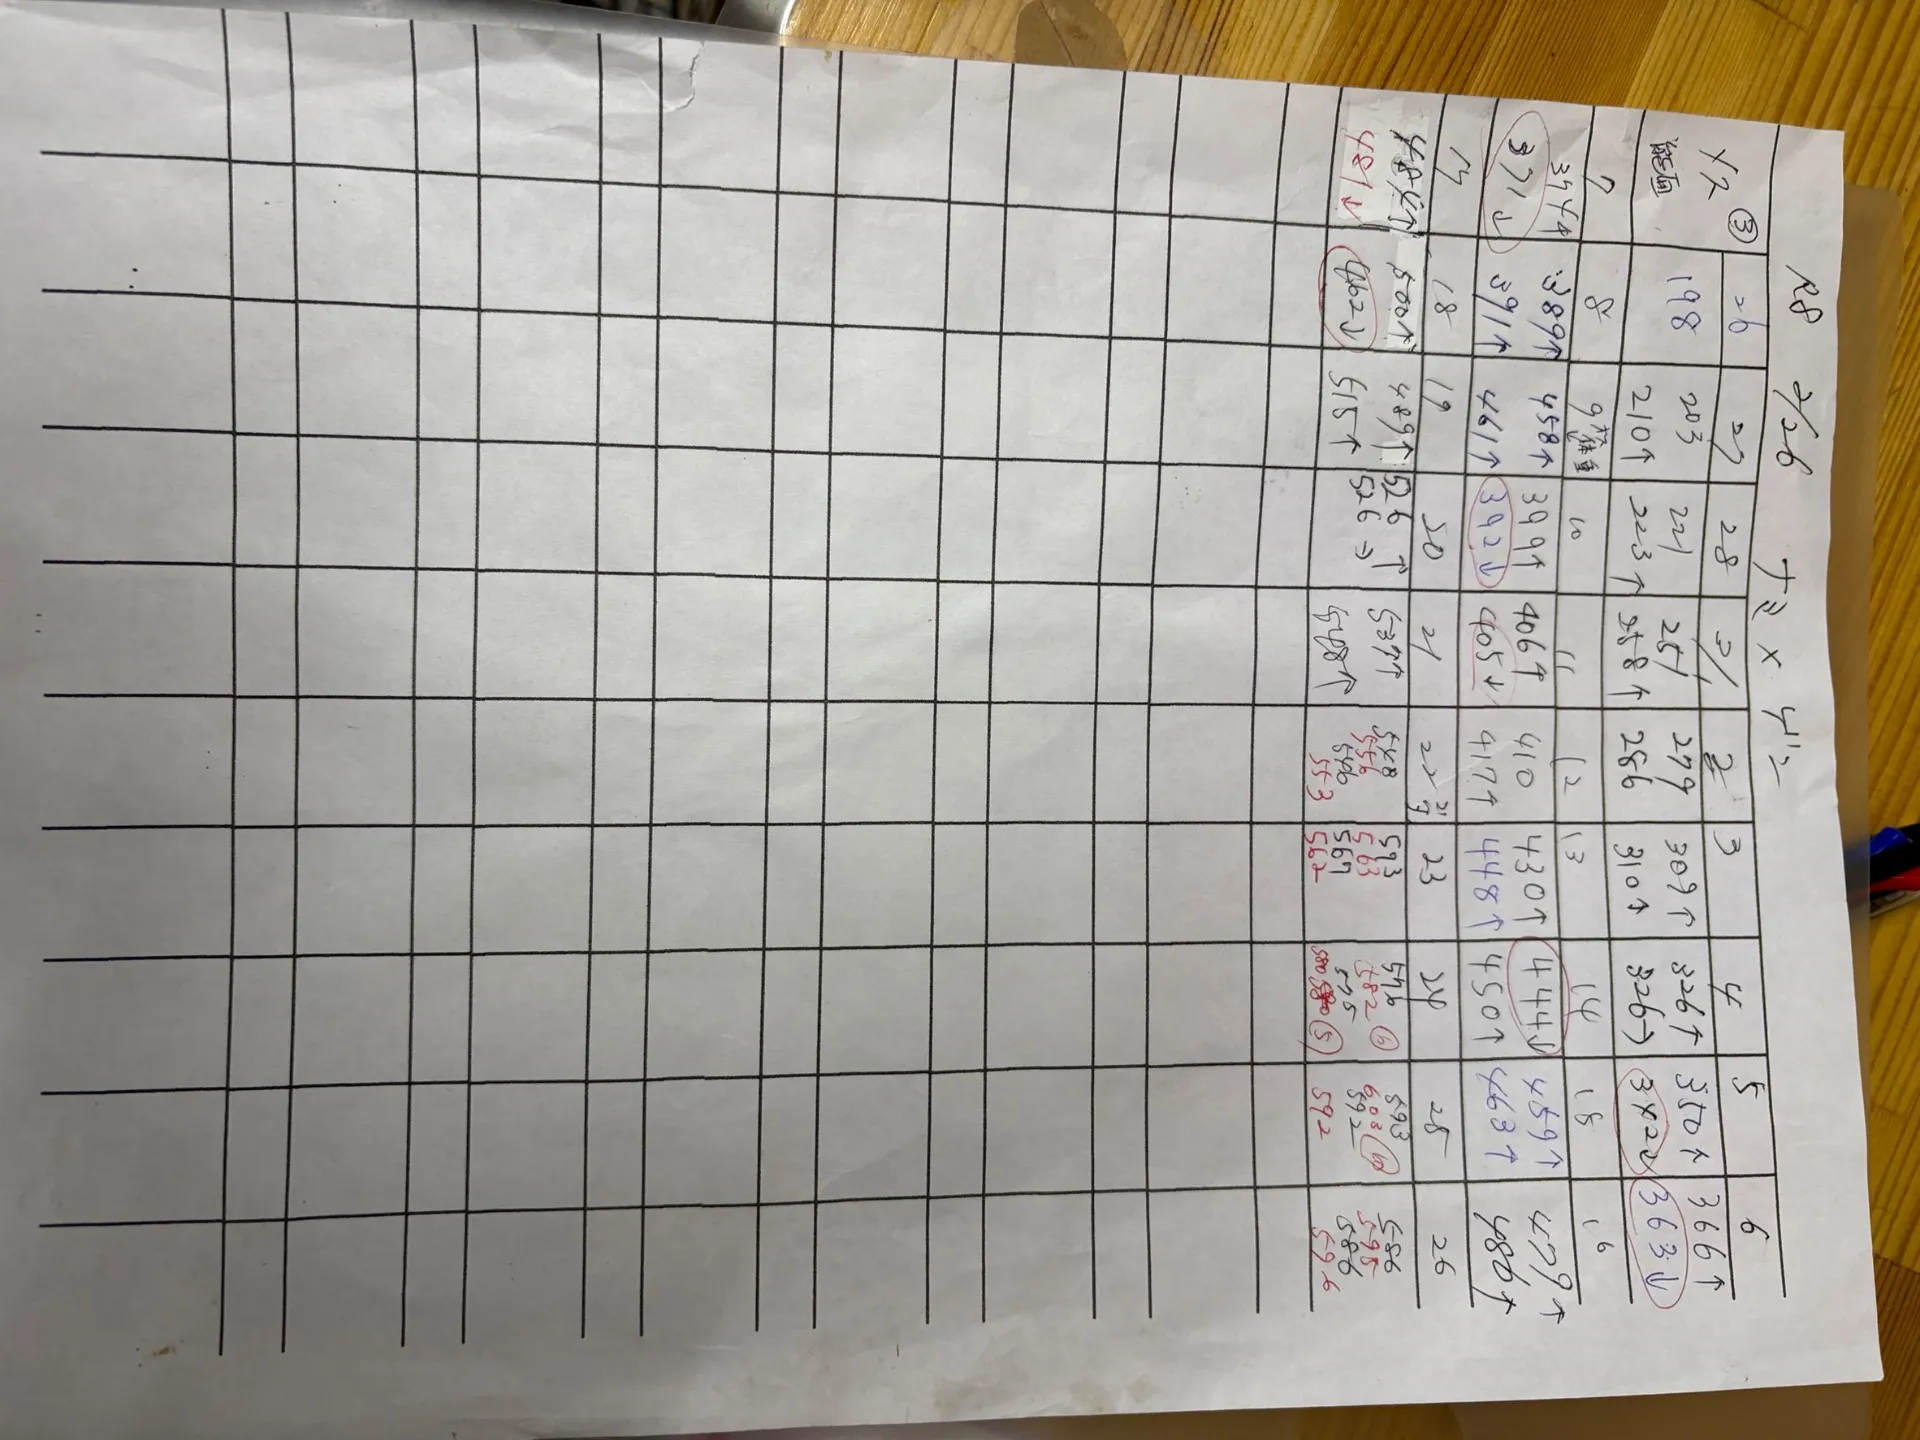 R8 2/26 ナミ×
Y2 ③ 26 27 28 3/1 2 3 4 5 6
198 203 221 251 279 309↑ 326↑ 350↑ 366↑
210↑ 223↑ 258↑ 286 310↑ 326→ 342↓ 363↓
7 8 9 10 11 12 13 14 15 16
394↑ 389↑ 458↑ 399↑ 406↑ 410 430↑ 444↓ 459↑ 479↑
371↓ 391↑ 461↑ 392↓ 405↓ 417↑ 448↑ 450↑ 463↑ 486↑
17 18 19 20 21 22 23 24 25 26
484↑ 500↑ 489↑ 526↑ 537↑ 548 593 576 593 586
556 563 582⑥ 603⑩ 595
481↓ 462↓ 515↑ 526→ 548↑ 546 567 575 592 586
553 562 580⑤ 592 596